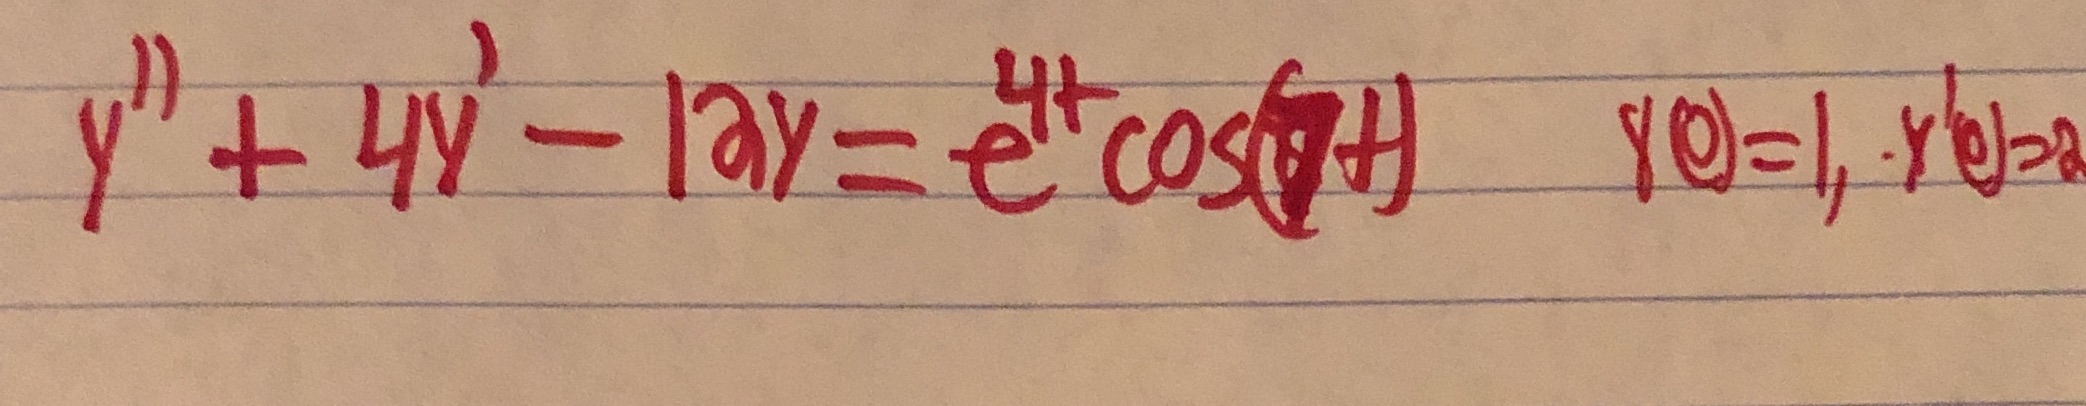 y'' + 4y' - 12y = e^4t cos(7t) y(0)=1, y'(0)=2